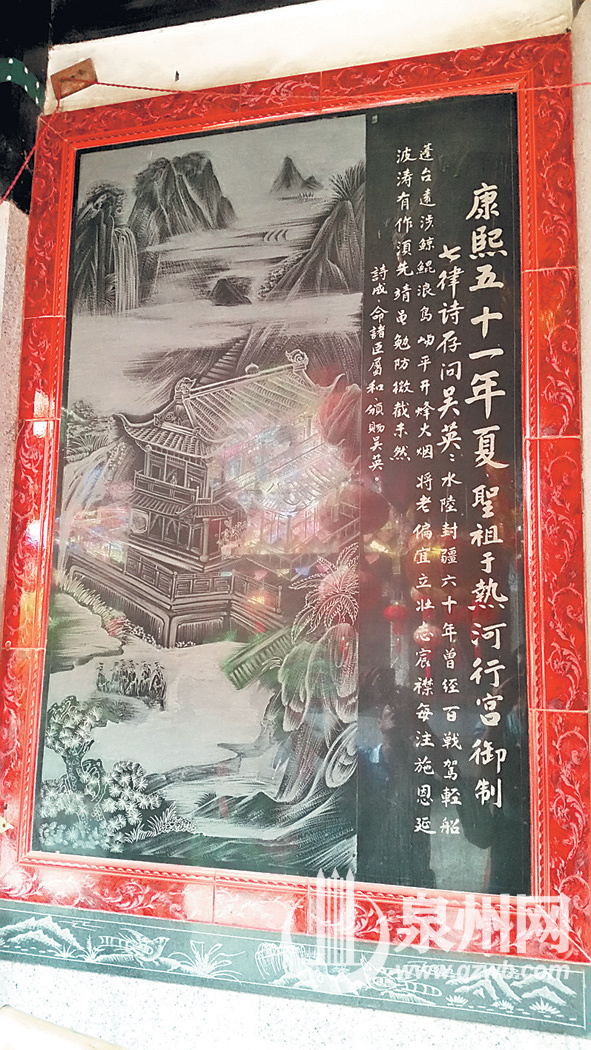 康熙五十一年夏聖祖于熱河行宫御制
七律诗存问吴英:水陸封疆六十年曾经百戰驾輕船
蓬台遠涉鯨鯤浪岛屿平开烽火烟将老偏宜立壮志宸襟每注施恩延
波涛有作須先靖黾勉防微戢未然
詩成命諸臣屬和頒賜吴英
泉州网
www.qzwb.com